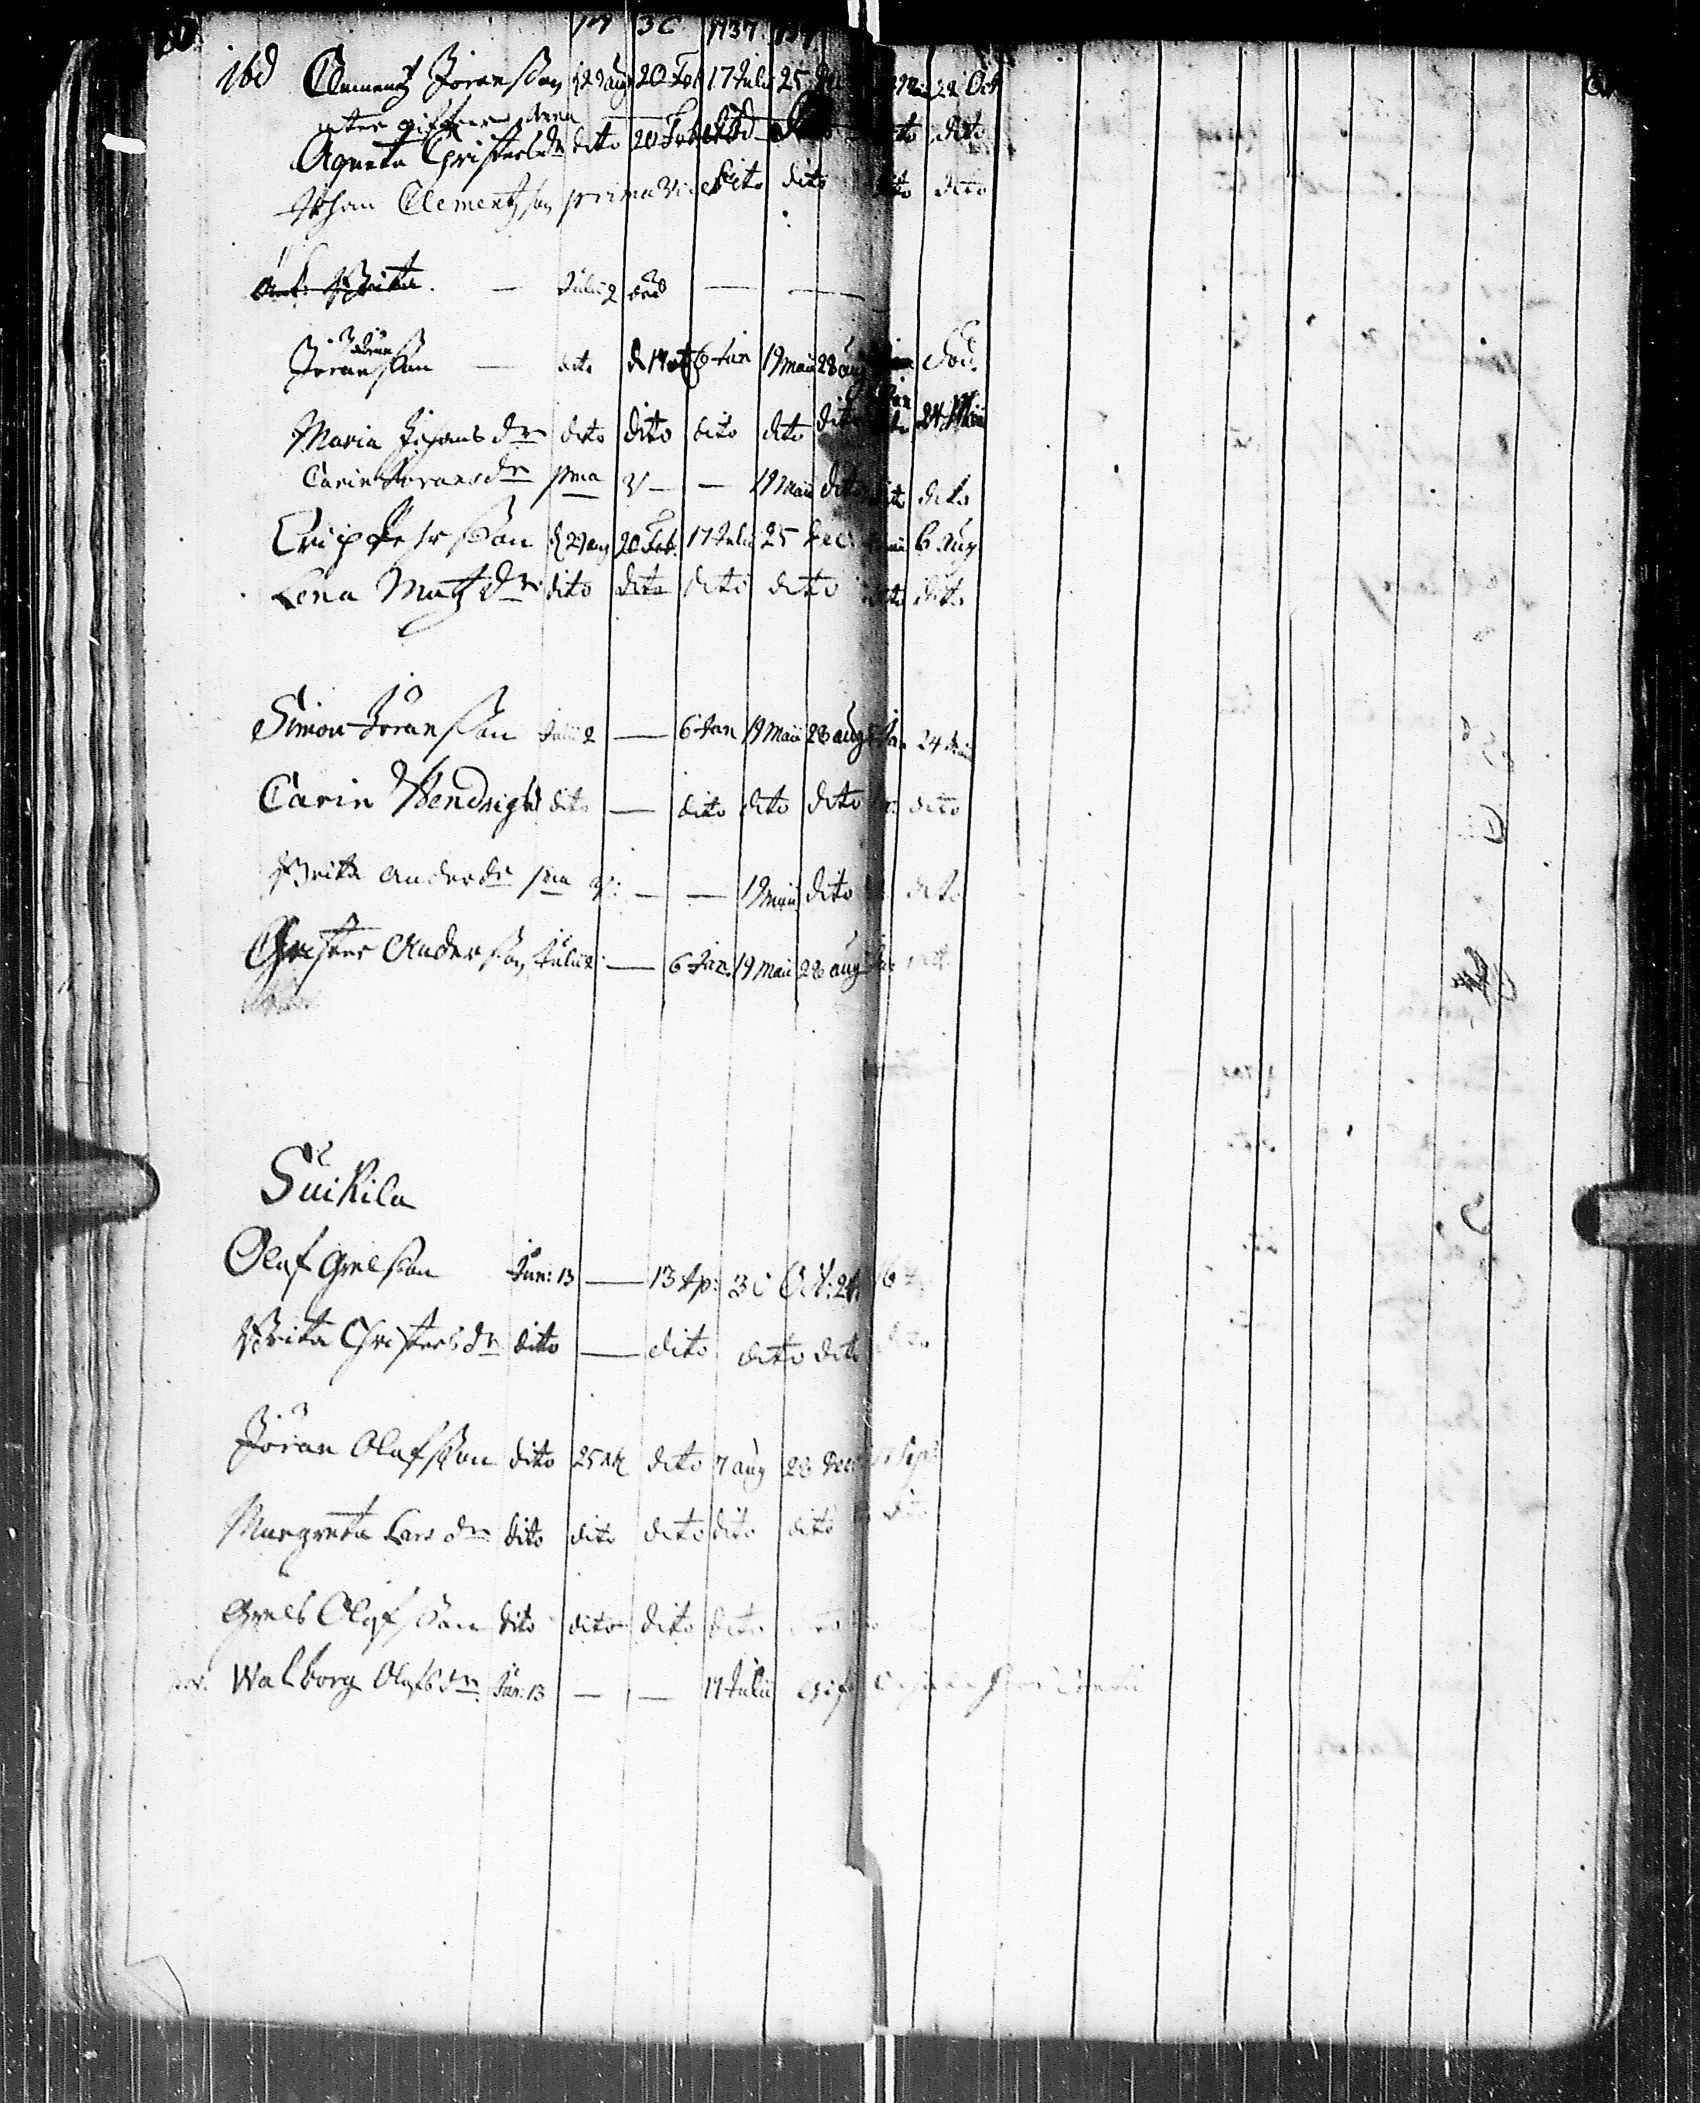 3C 1737
ibd Clementz Jöransson 29 aug 20 Feb 17 Julii 25 22 Oct
Agneta Christersdr dito 20 Feb död dito dito
Johan Clementzson prima vice dito dito dito dito
Enk: Brita — Julii 2 död — —
Jöransson — dito 6 Jan 19 Maii 28 aug död
Maria Johansdr dito dito dito dito dito 24 Maii
Carin Joransdr pma v — — 19 Maii dito dito dito
Eric Pehrsson 29 aug 20 Feb. 17 Julii 25 Dec: 6 Aug
Lena Matzdr dito dito dito dito dito dito
Simon Jöransson Julii 2 — 6 Jan 19 Maii 28 aug Jan 24
Carin Hendrigsd dito — dito dito dito dito
Brita andersdr pma v: — — 19 Maii dito dito
Christer Andersson Julii 2 — 6 Jan. 19 Maii 28 aug Jan
Suikila
Olaf Grelsson Jun: 13 — 13 Ap: 3C Oct: 24
Brita Christersdr dito — dito dito dito dito
Jöran Olafsson dito 25 dito 7 aug 28 Dec Sept
Margreta Larsdr dito dito dito dito dito dito
Grels Olofsson dito dito dito dito
Walborg Olofsdr Jun: 13 — — 17 Julii